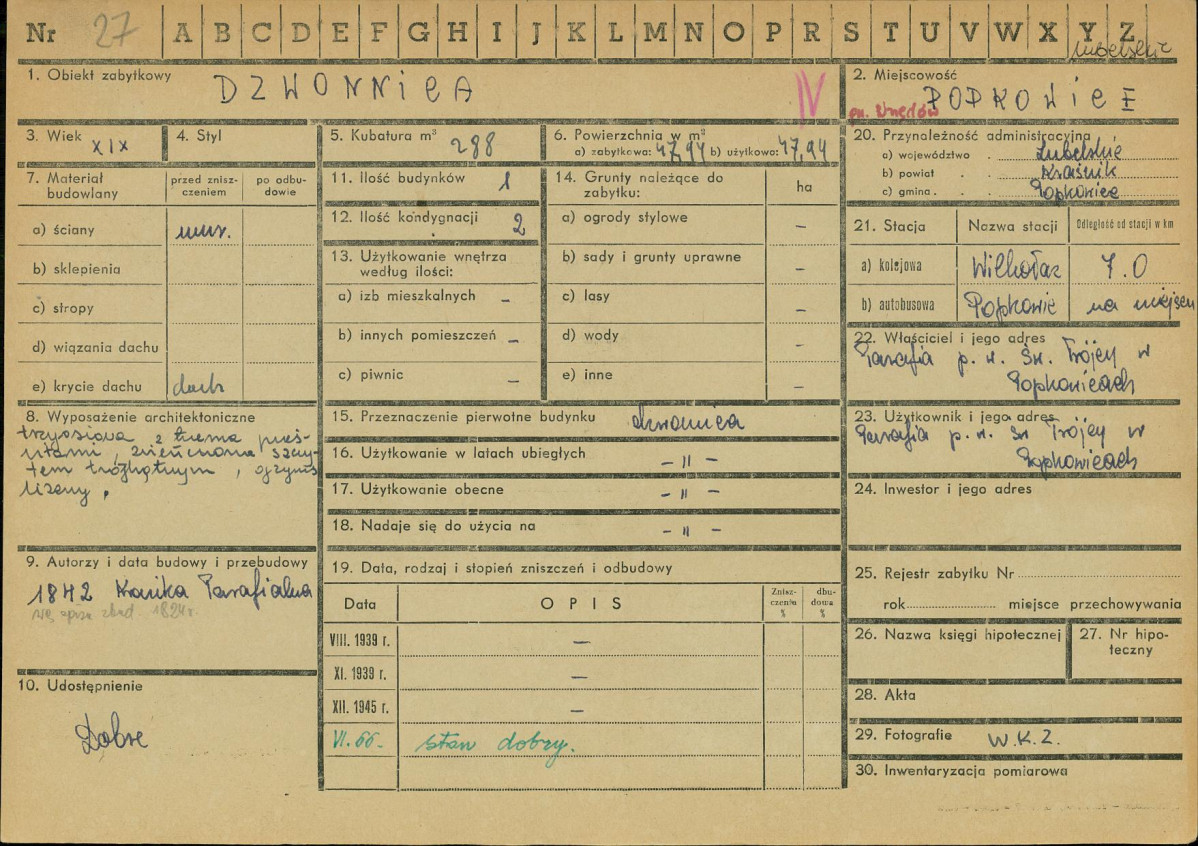 Nr 27 A B C D E F G H I J K L M N O P R S T U V W X Y Z
lubelskie
1. Obiekt zabytkowy DZWONNICA IV
2. Miejscowość POPKOWICE
pow. Urzędów
3. Wiek XIX
4. Styl
5. Kubatura m³ 288
6. Powierzchnia w m²
a) zabytkowa: 47,94 b) użytkowa: 47,94
20. Przynależność administracyjna
a) województwo Lubelskie
b) powiat Kraśnik
c) gmina Popkowice
7. Materiał budowlany
przed zniszczeniem
po odbudowie
a) ściany mur.
b) sklepienia
c) stropy
d) wiązania dachu
e) krycie dachu dach
11. Ilość budynków 1
12. Ilość kondygnacji 2
13. Użytkowanie wnętrza
według ilości:
a) izb mieszkalnych –
b) innych pomieszczeń –
c) piwnic –
14. Grunty należące do
zabytku: ha
a) ogrody stylowe –
b) sady i grunty uprawne –
c) lasy –
d) wody –
e) inne –
21. Stacja Nazwa stacji Odległość od stacji w km
a) kolejowa Wilkołaz 7.0
b) autobusowa Popkowie na miejscu
22. Właściciel i jego adres
Parafia p. w. Św. Trójcy w
Popkowicach
23. Użytkownik i jego adres
Parafia p. w. Św Trójcy w
Popkowicach
8. Wyposażenie architektoniczne
trzyosiowa z trzema prześ-
witami, zwieńczona szczy-
tem trójkątnym,
15. Przeznaczenie pierwotne budynku dzwonnica
16. Użytkowanie w latach ubiegłych – " –
17. Użytkowanie obecne – " –
18. Nadaje się do użycia na – " –
24. Inwestor i jego adres
9. Autorzy i data budowy i przebudowy
1842 Kronika Parafialna
1824 r.
19. Data, rodzaj i stopień zniszczeń i odbudowy
Data OPIS Zniszczenia % dbudowa %
VIII. 1939 r. –
XI. 1939 r. –
XII. 1945 r. –
VI. 66. – stan dobry.
25. Rejestr zabytku Nr
rok miejsce przechowywania
26. Nazwa księgi hipotecznej
27. Nr hipo-
teczny
10. Udostępnienie
Dobre
28. Akta
29. Fotografie W.K.Z.
30. Inwentaryzacja pomiarowa